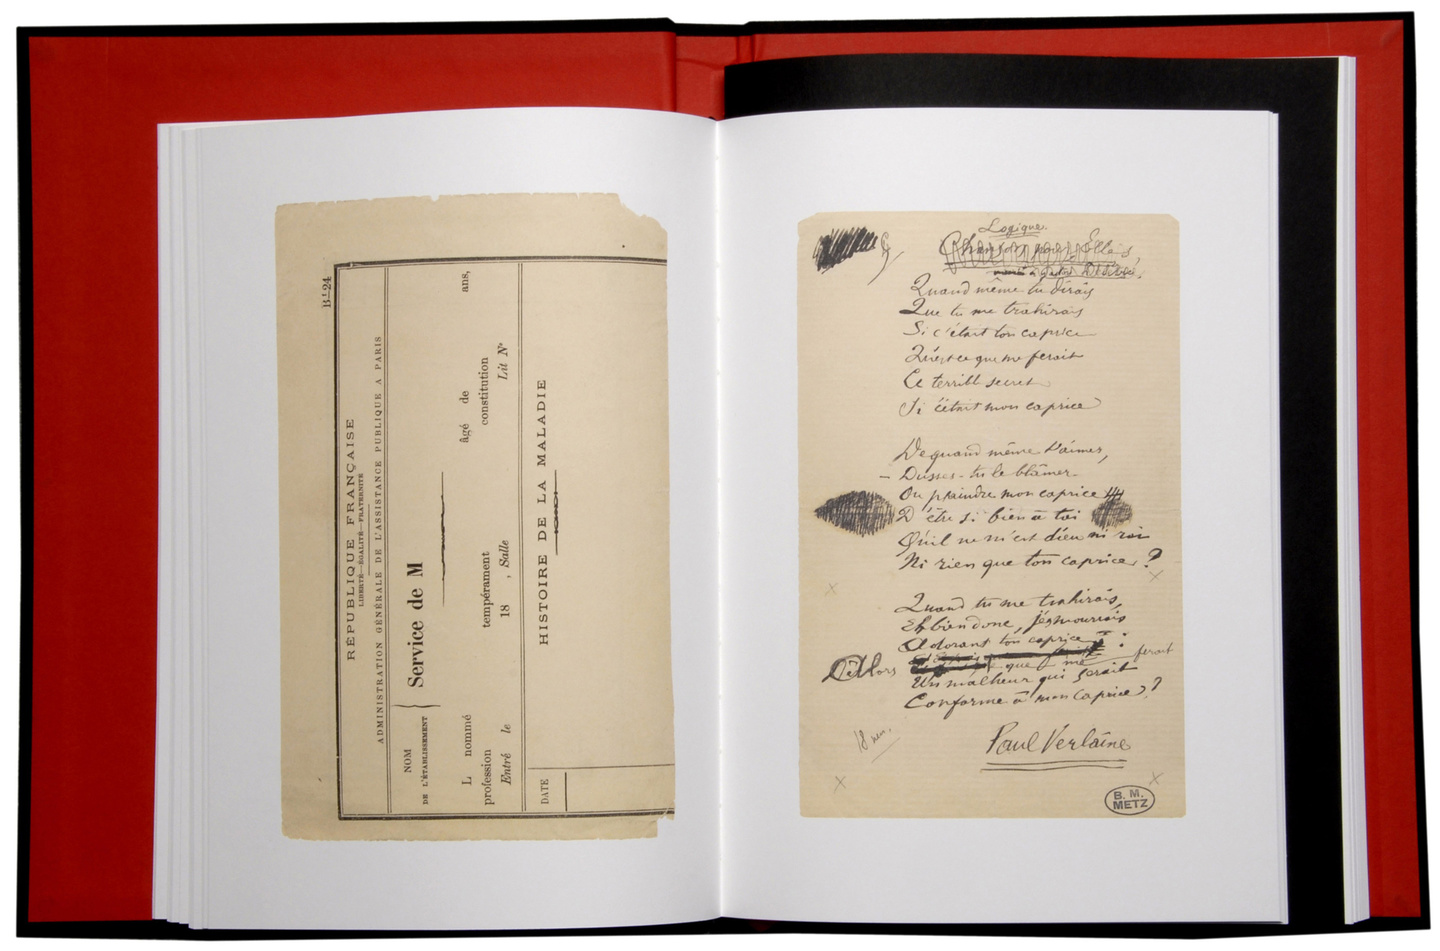 B¹ 24
RÉPUBLIQUE FRANÇAISE
LIBERTÉ—ÉGALITÉ—FRATERNITÉ
ADMINISTRATION GÉNÉRALE DE L'ASSISTANCE PUBLIQUE A PARIS
NOM
DE L'ÉTABLISSEMENT
Service de M
L nommé âgé de ans,
profession tempérament constitution
Entré le 18 , Salle Lit Nº
HISTOIRE DE LA MALADIE
DATE
Logique
Chanson pour Elle
Quand même tu dirais
Que tu me trahirais
Si c'était ton caprice
Qu'est ce que me ferait
Ce terrible secret
Si c'était mon caprice
De quand même t'aimer,
– Dusses-tu le blâmer
Ou plaindre mon caprice
D'être si bien à toi
Qu'il ne m'est dieu ni roi
Ni rien que ton caprice ?
Quand tu me trahirais,
Eh bien donc, j'en mourrais
Adorant ton caprice :
Alors que me ferait
Un malheur qui serait
Conforme à mon caprice ?
Paul Verlaine
B. M.
METZ